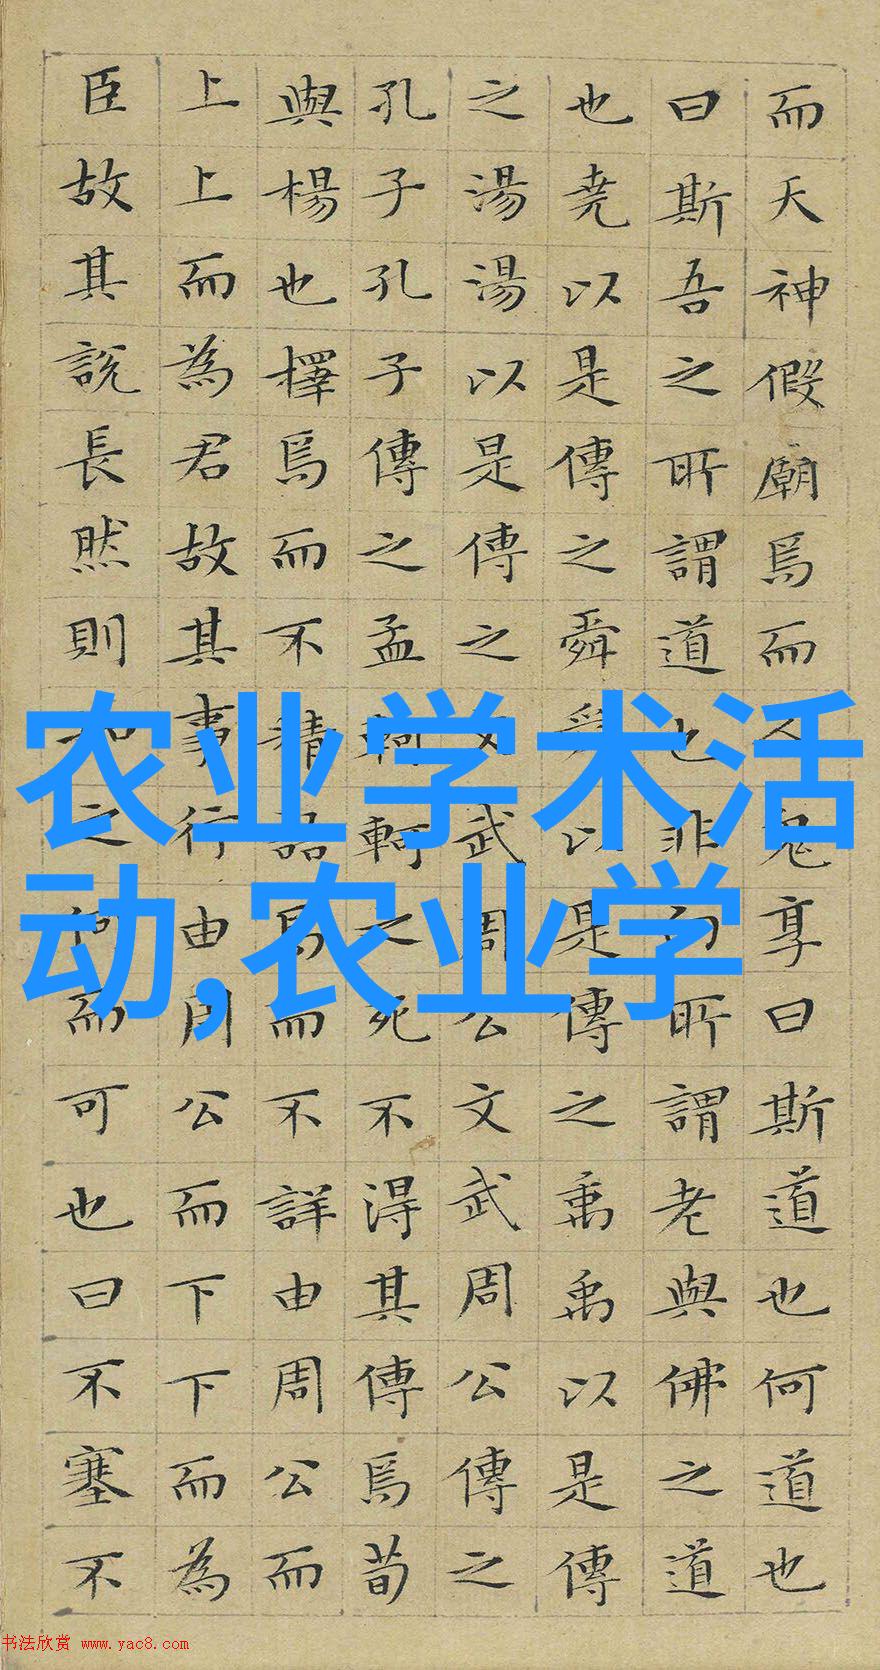 而天神假廟焉而人鬼享曰斯道也何道也
曰斯吾之所謂道也非向所謂老與佛之道
也堯以是傳之舜舜以是傳之禹禹以是傳
之湯湯以是傳之文武周公文武周公傳之
孔子孔子傳之孟軻軻之死不得其傳焉荀
與楊也擇焉而不精語焉而不詳由周公而
上上而為君故其事行由周公而下下而為
臣故其說長然則如之何而可也曰不塞不
农业学术活
动,农业学
书法欣赏 www.yac8.com